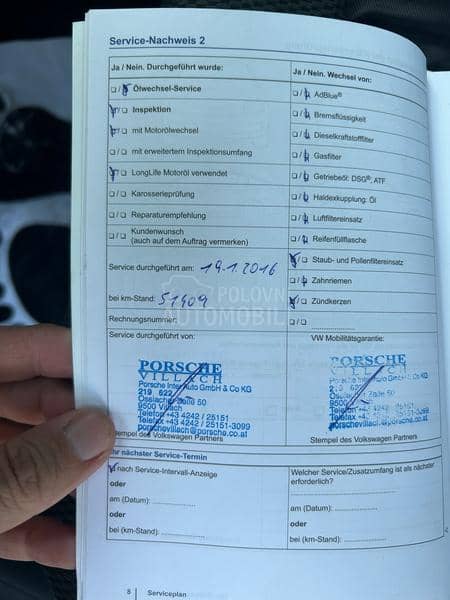 Service-Nachweis 2
Ja / Nein. Durchgeführt wurde:
Ölwechsel-Service
Inspektion
mit Motorölwechsel
mit erweitertem Inspektionsumfang
LongLife Motoröl verwendet
Karosserieprüfung
Reparaturempfehlung
Kundenwunsch
(auch auf dem Auftrag vermerken)
Service durchgeführt am: 19.1.2016
bei km-Stand: 51409
Rechnungsnummer:
Service durchgeführt von:
PORSCHE
VILLACH
Porsche Inter Auto GmbH & Co KG
219 622
Ossiacher Zeile 50
9500 Villach
Telefon +43 4242 / 25151
Telefax +43 4242 / 25151-3099
porschevillach@porsche.co.at
Stempel des Volkswagen Partners
Ja / Nein. Wechsel von:
AdBlue®
Bremsflüssigkeit
Dieselkraftstofffilter
Gasfilter
Getriebeöl: DSG®; ATF
Haldexkupplung: Öl
Luftfiltereinsatz
Reifenfüllflasche
Staub- und Pollenfiltereinsatz
Zahnriemen
Zündkerzen
VW Mobilitätsgarantie:
PORSCHE
VILLACH
Porsche Inter Auto GmbH & Co KG
9500 Villach
Telefon +43 4242 / 25151
Telefax +43 4242 / 25151-3099
porschevillach@porsche.co.at
Stempel des Volkswagen Partners
Ihr nächster Service-Termin
nach Service-Intervall-Anzeige
oder
am (Datum):
oder
bei (km-Stand):
Welcher Service/Zusatzumfang ist als nächster
erforderlich?
am (Datum):
oder
bei (km-Stand):
8 Serviceplan
POLOVNI
AUTOMOBILI